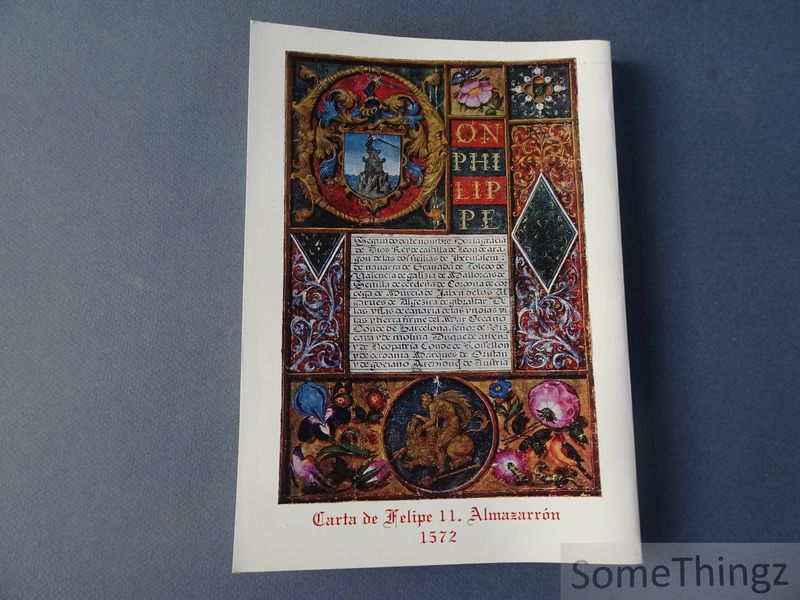 ON
PHI
LIP
PE
Segundo deste nombre Por la gracia
de Dios Rey de castilla de Leon de ara
gon de las dos sicilias de Iherusalem
de navarra de Granada de Toledo de
Valencia de galizia de Mallorcas de
Sevilla de cerdeña de Cordova de cor
cega de Murcia de Jahen de los Al
garves de Algezira de gibraltar De
las yslas de canaria de las yndias
y tierra firme del Mar Oceano
Conde de Barcelona señor de Viz
caya y de molina Duque de athena
y de Neopatria Conde de Roisellon
y de cerdania Marques de Oristan
y de gociano Archiduq de Austria
Carta de Felipe 11. Almazarrón
1572
SomeThingz